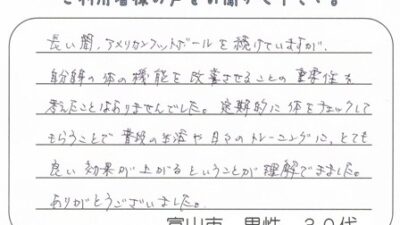 ご利用者様の声をお聞かせ下さい。
長い間、アメリカンフットボールを続けていますが、
自分の体の機能を改善させることの重要性を
考えたことはありませんでした。定期的に体をチェックして
もらうことで普段の生活や日々のトレーニングに、とても
良い効果が上がるということが理解できました。
ありがとうございました。
富山市 男性 30代